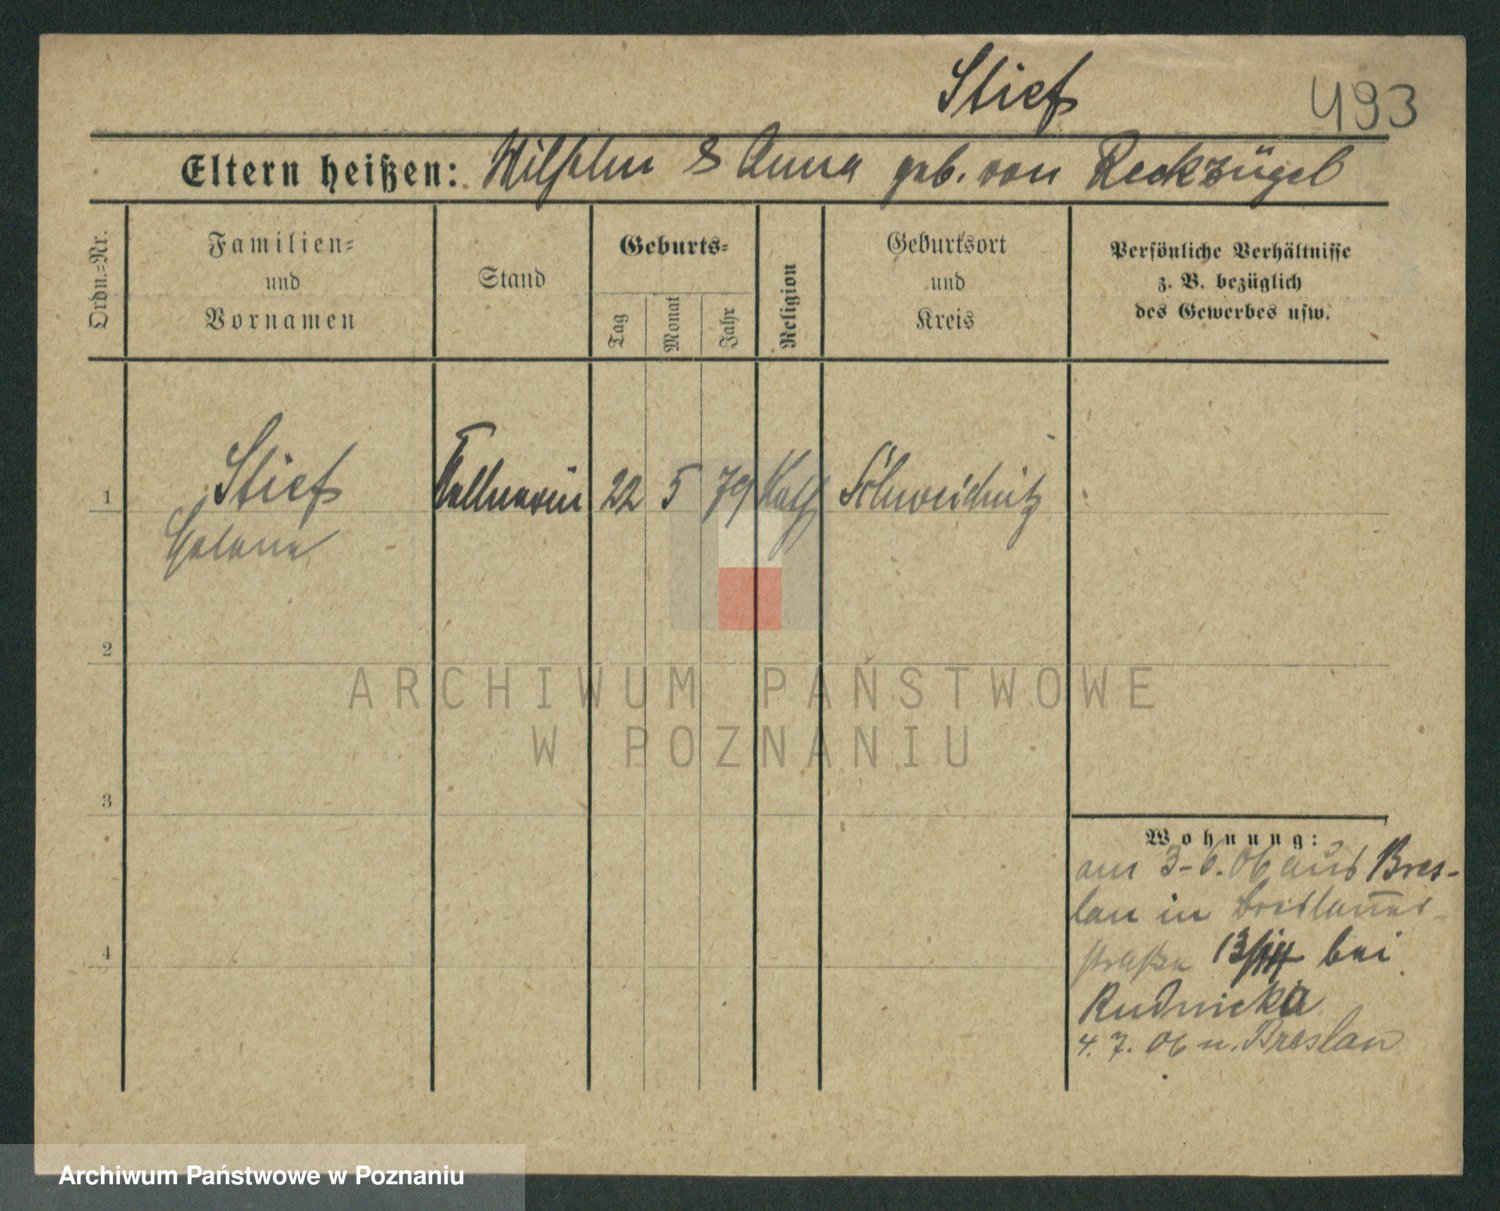 Stief 493
Eltern heißen: Wilhelm & Anna geb. von Reckzügel
Ordn.-Nr.
Familien-
und
Vornamen
Stand
Geburts-
Tag
Monat
Jahr
Religion
Geburtsort
und
Kreis
Persönliche Verhältnisse
z. B. bezüglich
des Gewerbes usw.
1 Stief Kellnerin 22 5 79 Kath Schweidnitz
Helene
2
ARCHIWUM PAŃSTWOWE
W POZNANIU
3
Wohnung:
am 3-6.06 aus Bres-
lau in Breslauer-
4
straße 13/ bei
Rudnicka
4.7.06 n. Breslau
Archiwum Państwowe w Poznaniu